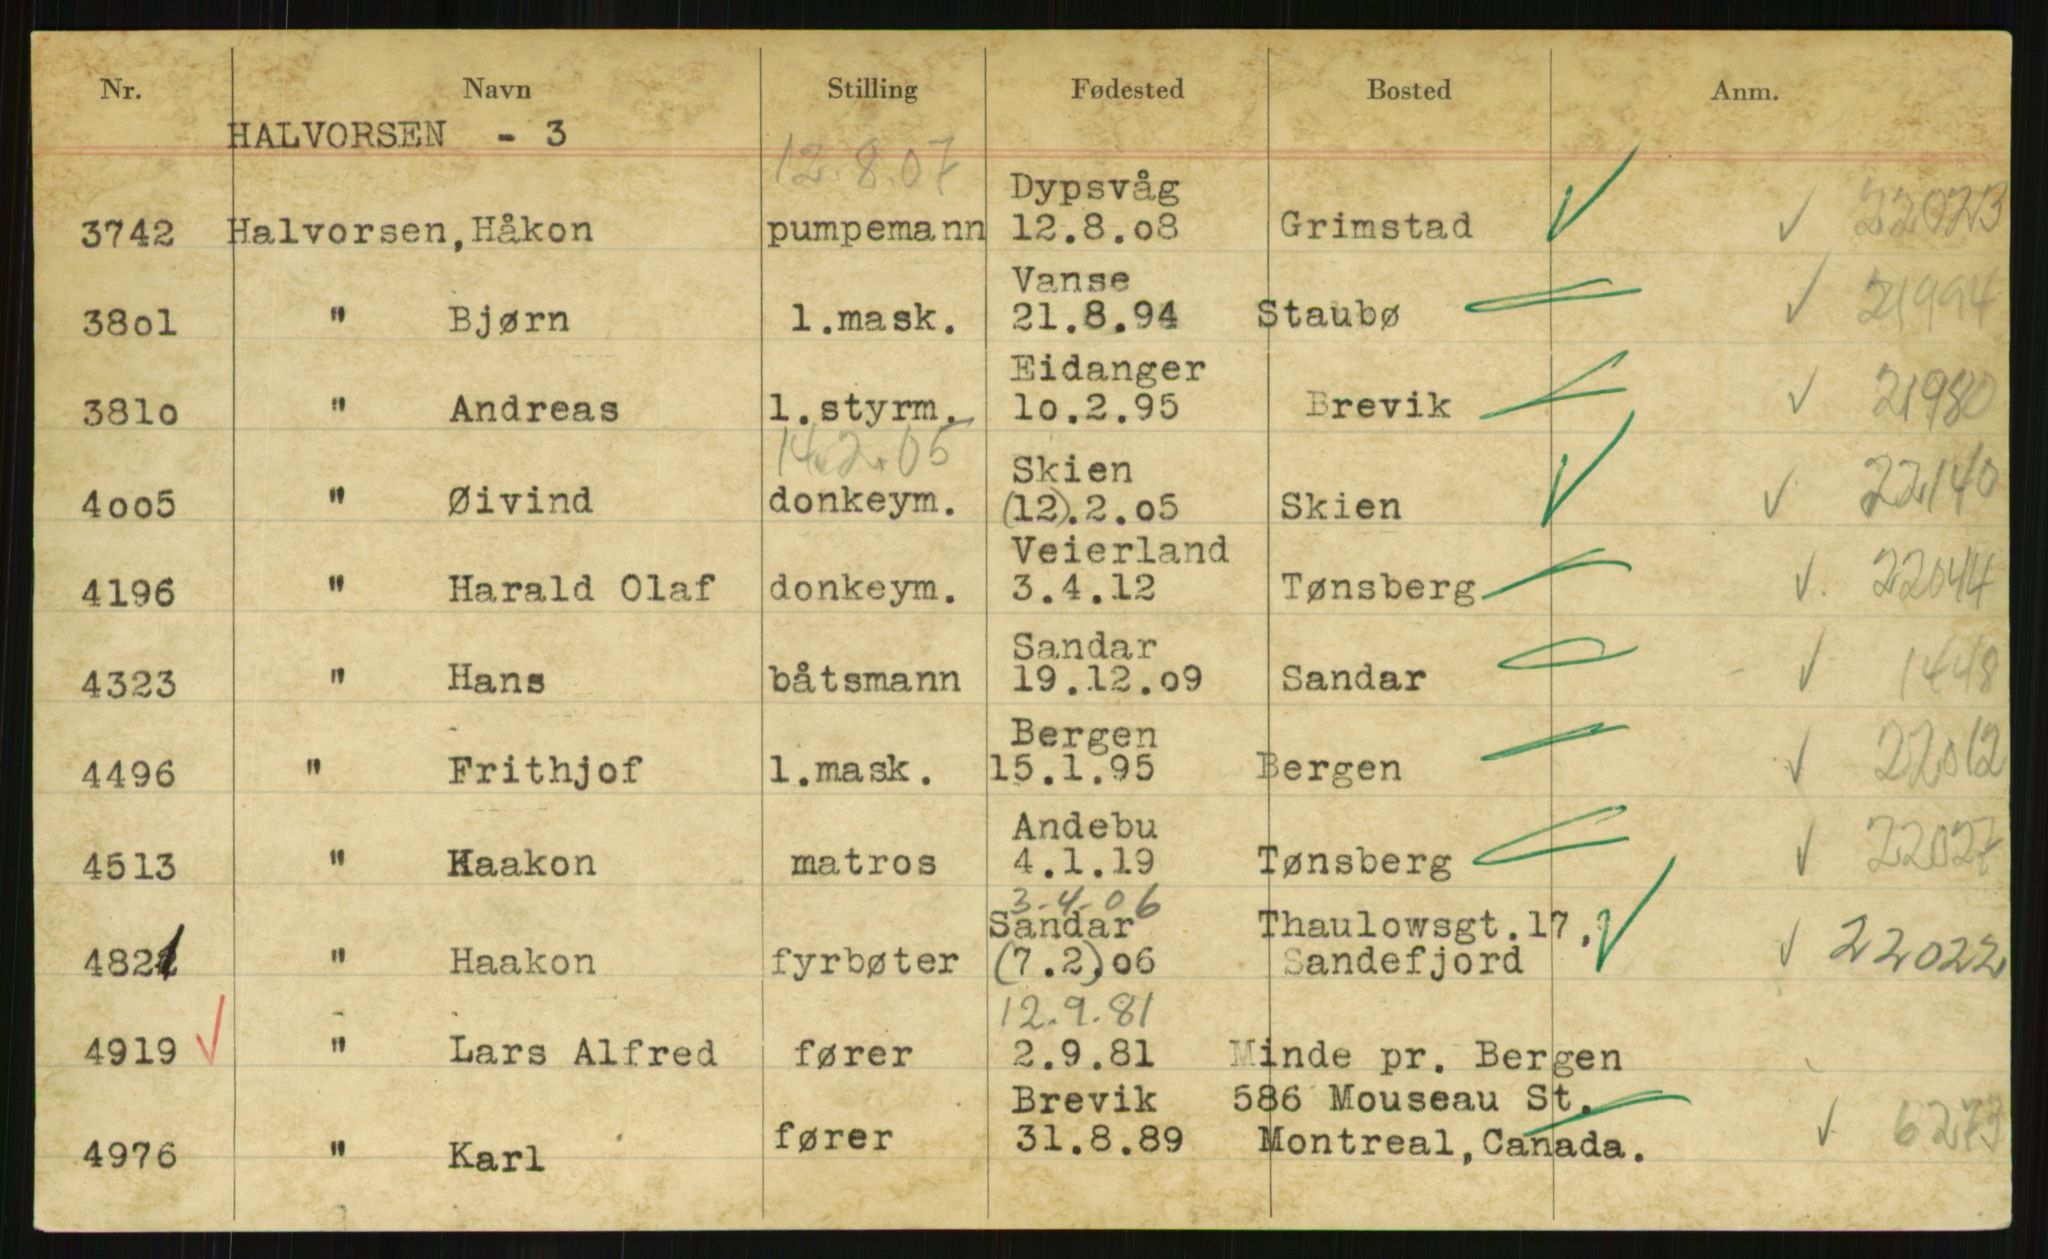 Nr. Navn Stilling Fødested Bosted Anm.
HALVORSEN - 3
12.8.07
Dypsvåg
3742 Halvorsen, Håkon pumpemann 12.8.o8 Grimstad ✓ ✓ 22023
Vanse
38o1 " Bjørn 1.mask. 21.8.94 Staubø ✓ 21994
Eidanger
381o " Andreas 1.styrm. 1o.2.95 Brevik ✓ 21980
14.2.05
Skien
4oo5 " Øivind donkeym. (12).2.o5 Skien ✓ ✓ 22140
Veierland
4196 " Harald Olaf donkeym. 3.4.12 Tønsberg ✓. 22044
Sandar
4323 " Hans båtsmann 19.12.o9 Sandar - ✓ 1448
Bergen
4496 " Frithjof 1.mask. 15.1.95 Bergen ✓ 22012
Andebu
4513 " Haakon matros 4.1.19 Tønsberg ✓ 22027
3-4-06
Sandar Thaulowsgt.17,
4821 " Haakon fyrbøter (7.2)o6 Sandefjord ✓ ✓ 22022
12.9.81
4919 ✓ " Lars Alfred fører 2.9.81 Minde pr. Bergen
Brevik 586 Mouseau St.
4976 " Karl fører 31.8.89 Montreal, Canada. ✓ 6273